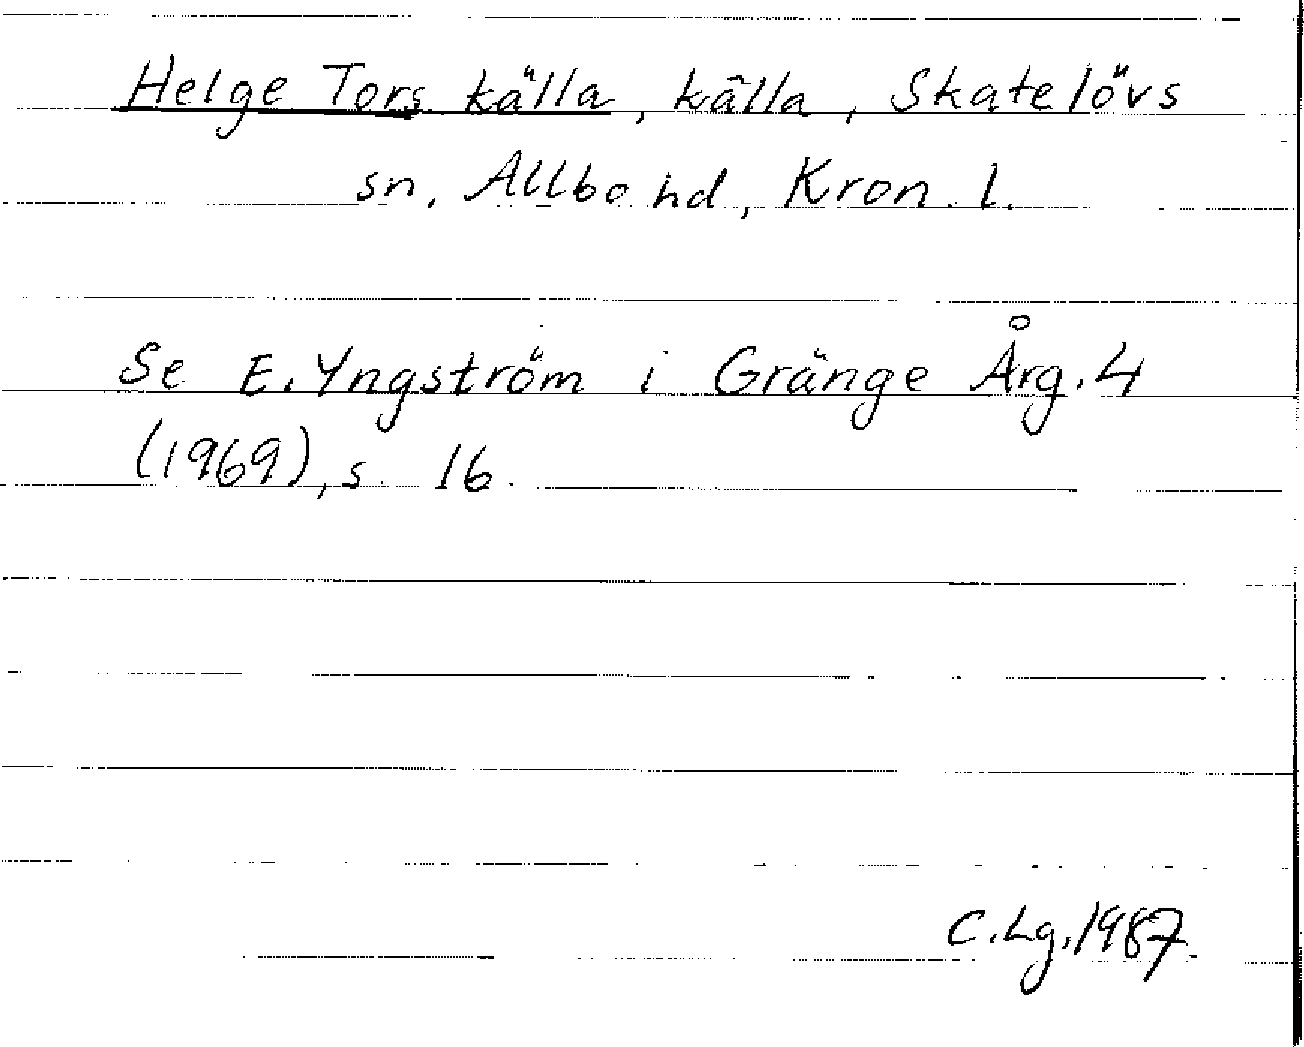 Helge Tors källa, källa, Skatelövs
sn, Allbo hd, Kron. l.
Se E. Yngström i Gränge Årg. 4
(1969), s. 16.
C. Lg. 1987.